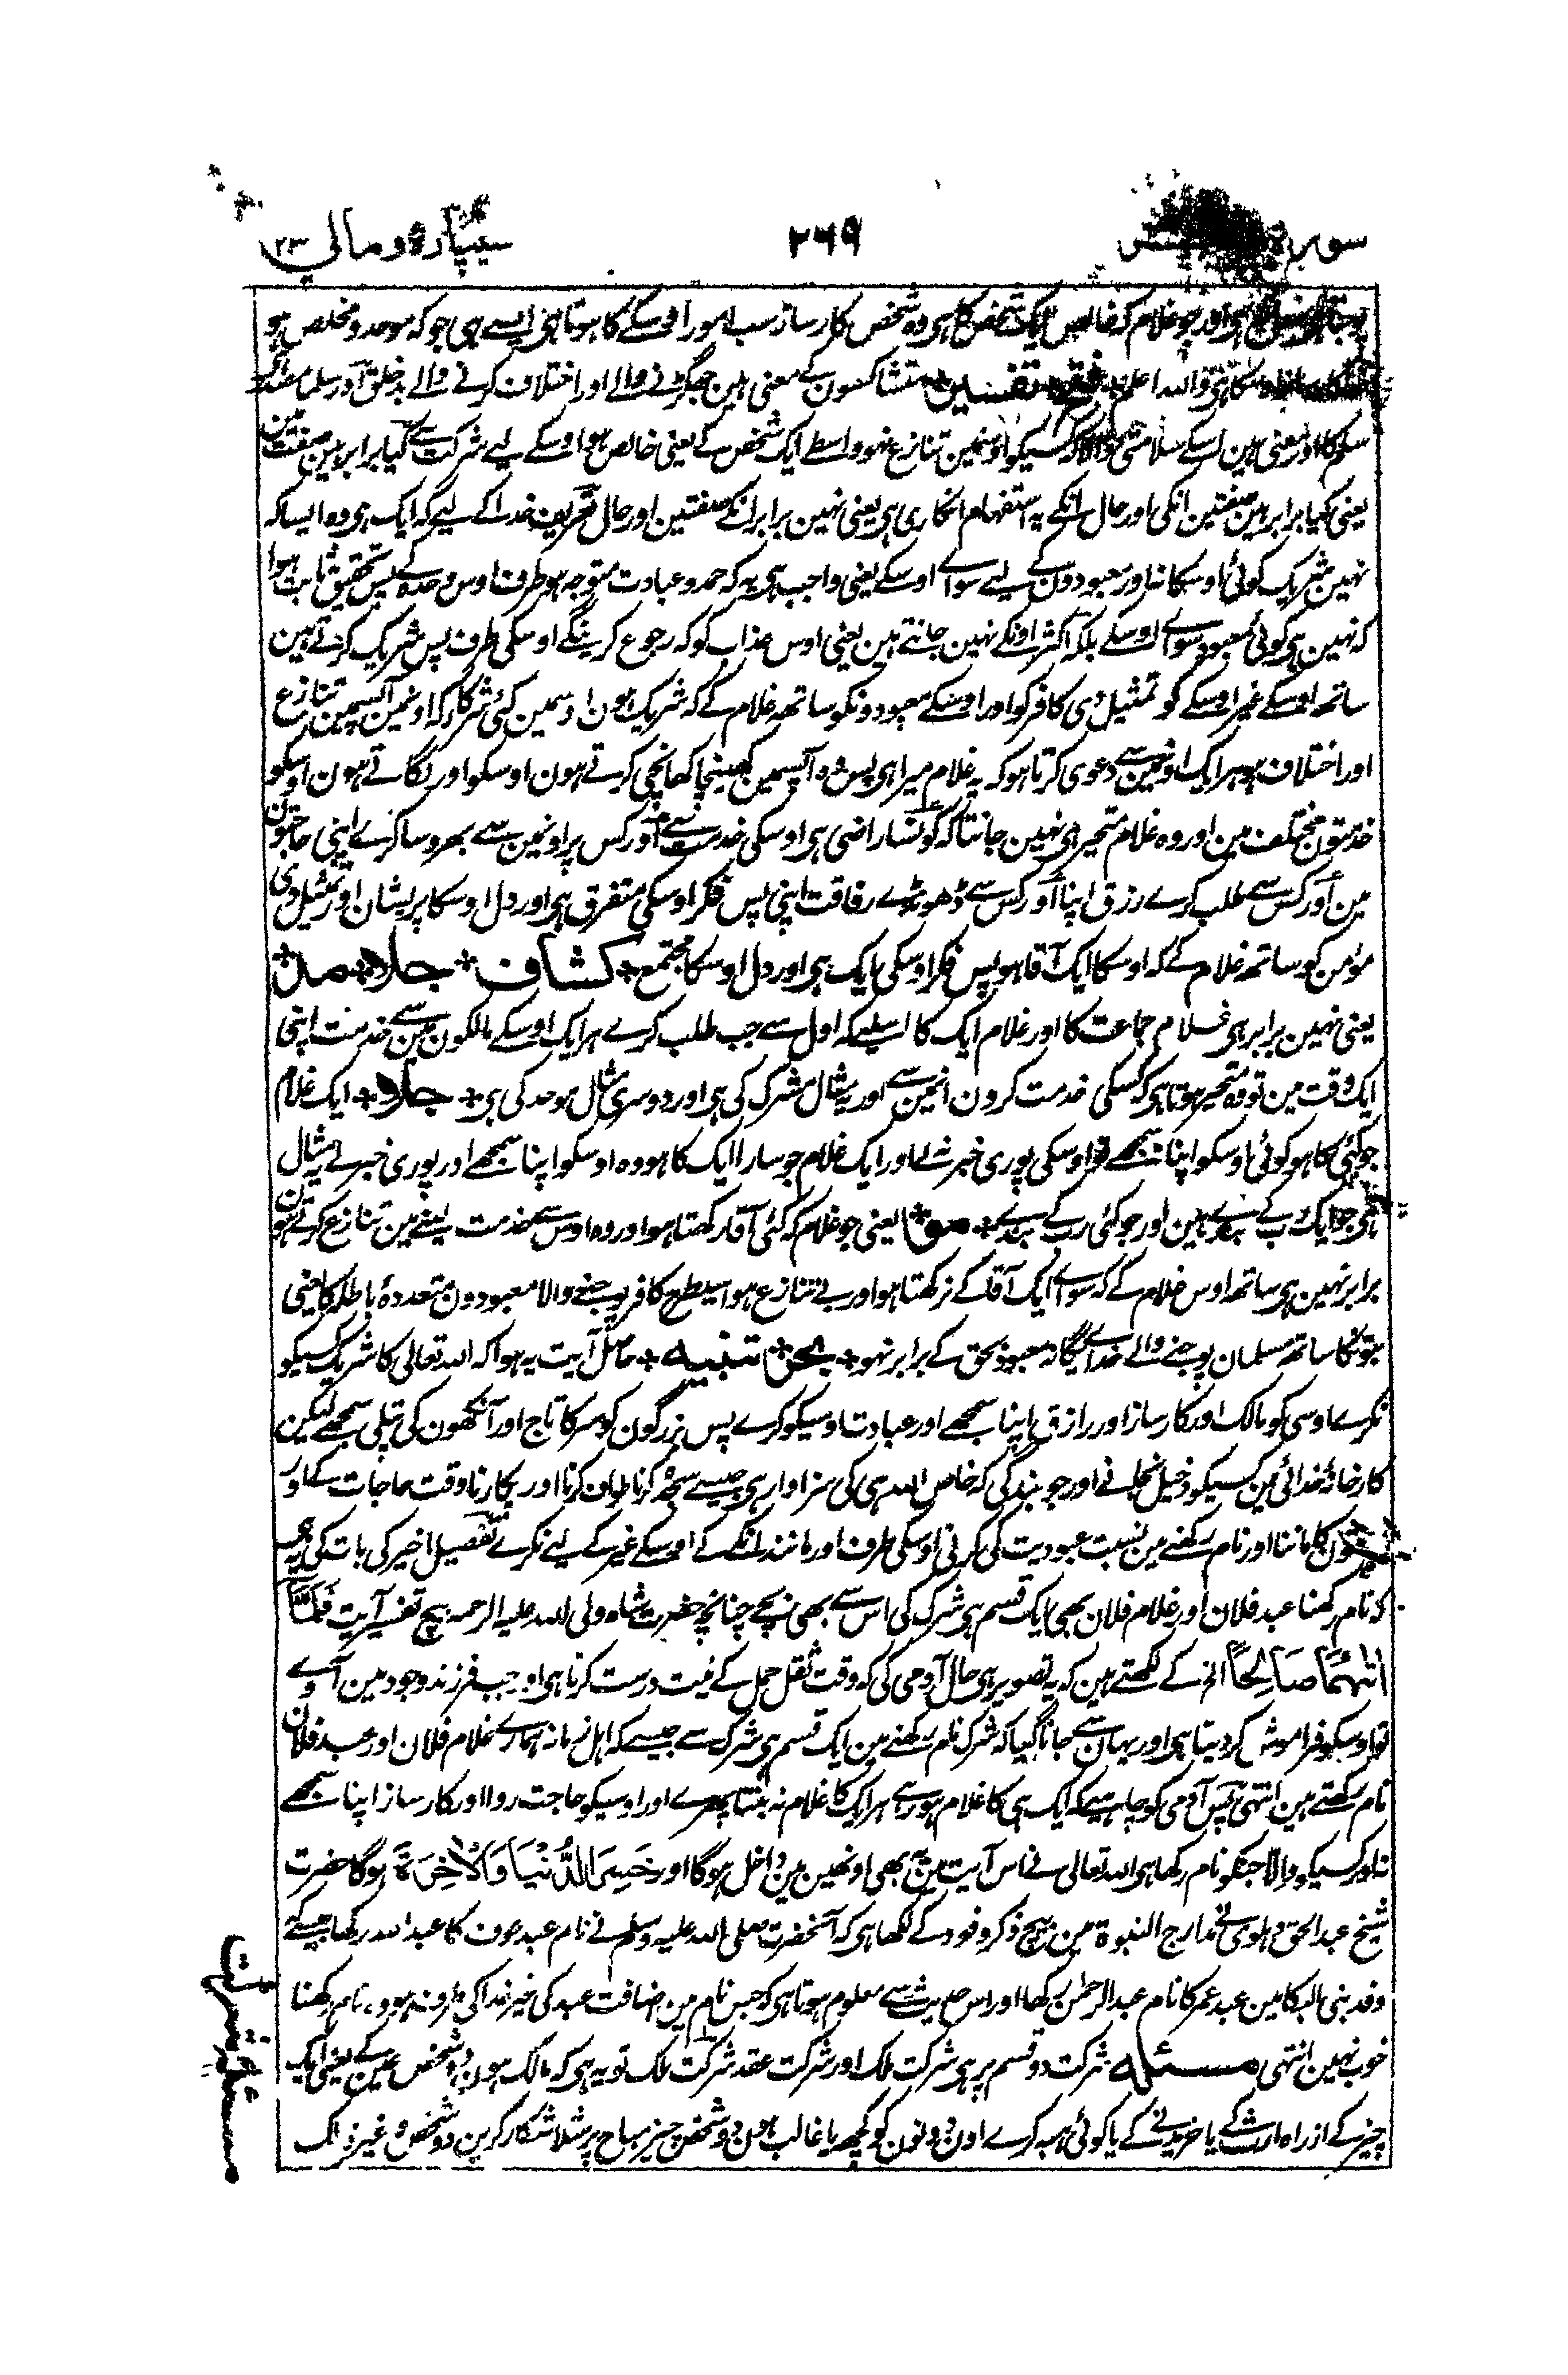 سورہ
۲۶۹
سیپارہ ومالی ۲۳
اور جو غلام کہ خالص ایک شخص کا ہی وہ شخص کارساز سب امور اوسکے کا ہوتا ہی ایسے ہی جو کہ موحد و مخلص ہو
واللہ اعلم تفسیر متشاکسون کے معنی ہین جھگڑنے والے اور اختلاف کرنے والے بدخلق اور سلما مصدر ہی
سلم کا اور معنی ہین اسکے سلامتی والا کہ کسیکو اوسمین تنازع نہو واسطے ایک شخص کے یعنی خالص ہو اوسکے لیے شرکت سے کیا برابر ہین صفت مین
یعنی کیا برابر ہین صفتین انکی اور حال انکے یہ استفہام انکاری ہی یعنی نہین برابر انکے صفتین اور حال تعریف خدا کے لیے کہ ایک ہی وہ ایسا کہ
نہین شریک کوئی اوسکا نہ اور معبودون کے لیے سواے اوسکے یعنی واجب ہی یہ کہ حمد و عبادت متوجہ ہو طرف اوس وحدہ کے پس تحقیق ثابت ہوا
کہ نہین ہی کوئی معبود سواے اوسکے بلکہ اکثر اونکے نہین جانتے ہین یعنی اوس عذاب کو کہ رجوع کرینگے اوسکی طرف پس شریک کرتے ہین
ساتھ اوسکے غیر اوسکے کو تمثیل دی کافر کو اور اوسکے معبودونکو ساتھ غلام کے کہ شریک ہون اوسمین کئی شرکا کہ اونمین آپسمین تنازع
اور اختلاف ہو ہر ایک اونمین سے دعوی کرتا ہو کہ یہ غلام میرا ہی پس وہ آپسمین کھینچا کھانچی کرتے ہون اوسکو اور لگاتے ہون اوسکو
خدمتون مختلف مین اور وہ غلام متحیر ہی نہین جانتا کہ کونسا راضی ہی اوسکی خدمت سے اور کس پر اونمین سے بھروسا کرے اپنی حاجتون
مین اور کس سے طلب کرے رزق اپنا اور کس سے ڈھونڈے رفاقت اپنی پس فکر اوسکی متفرق ہی اور دل اوسکا پریشان اور تمثیل دی
مؤمن کو ساتھ غلام کے کہ اوسکا ایک آقا ہو پس فکر اوسکی ایک ہی اور دل اوسکا مجتمع ٭ کشاف ٭ جلا ٭ مد ٭
یعنی نہین برابر ہی غلام جماعت کا اور غلام ایک کا اسلیے کہ اول سے جب طلب کرے ہر ایک اوسکے مالکون مین سے خدمت اپنی
ایک وقت مین تو وہ متحیر ہوتا ہی کہ کسکی خدمت کرون انمین سے اور یہ مثال مشرک کی ہی اور دوسری مثال موحد کی ہی ٭ جلا ٭ ایک غلام
جو کئی کا ہو کوئی اوسکو اپنا نسمجھے تو اوسکی پوری خبر نہ لے اور ایک غلام جو سارا ایک کا ہو وہ اوسکو اپنا سمجھے اور پوری خبر لے یہ مثال
ہی جو ایک رب کے بندے ہین اور جو کئی رب کے بندے ٭ مو ٭ یعنی جو غلام کہ کئی آقا رکھتا ہو اور وہ اوس سے خدمت لینے مین تنازع کرتے ہون
برابر نہین ہی ساتھ اوس غلام کے کہ سواے ایک آقا کے نرکھتا ہو اور بے تنازع ہو اسیطرح کافر پوجنے والا معبودون متعددہ باطلہ کا یعنی
بتونکا ساتھ مسلمان پوجنے والے خداے یگانہ معبود بحق کے برابر نہو ٭ بحر ٭ تنبیہ ٭ حاصل آیت یہ ہوا کہ اللہ تعالی کا شریک کسیکو
نکرے اوسی کو مالک اور کارساز اور رازق اپنا سمجھے اور عبادت اوسیکو کرے پس بزرگون کو سر کا تاج اور آنکھون کی پتلی سمجھے لیکن
کارخانۂ خدائی مین کسیکو دخیل نجانے اور جو بندگی کہ خاص اللہ ہی کی سزاوار ہی جیسے سجدہ کرنا طواف کرنا اور پکارنا وقت حاجات کے اور
کا ماننا اور نام رکھنے مین نسبت عبودیت کی کرنی اوسکی طرف اور مانند انکے کے اوسکے غیر کے لیے نکرے تفصیل اخیر کی بات کی یہ ہی
کہ نام رکھنا عبد فلان اور غلام فلان بھی ایک قسم ہی شرک کی اس سے بھی بچے چنانچہ حضرت شاہ ولی اللہ علیہ الرحمہ بیچ تفسیر آیت فَلَمَّا
اٰتٰىهُمَا صَالِحًا الخ کے لکھتے ہین کہ یہ تصویر ہی حال آدمی کی کہ وقت ثقل حمل کے نیت درست کرتا ہی اور جب فرزند وجود مین آوے
تو اوسکو فراموش کر دیتا ہی اور یہان سے جانا گیا کہ شرک نام رکھنے مین ایک قسم ہی شرک سے جیسے کہ اہل زمانہ ہمارے غلام فلان اور عبد فلان
نام رکھتے ہین انتہی پس آدمی کو چاہیے کہ ایک ہی کا غلام ہو رہے ہر ایک کا غلام نہ بنتا پھرے اور اوسیکو حاجت روا اور کارساز اپنا سمجھے
نہ اور کسیکو والا جنکو نام رکھا ہی اللہ تعالی نے اس آیت مین بھی اونھین مین داخل ہوگا اور خَسِرَ الدُّنْيَا وَالْاٰخِرَةَ ہوگا حضرت
شیخ عبد الحق دہلوی نے مدارج النبوة مین بیچ ذکر وفود کے لکھا ہی کہ آنحضرت صلی اللہ علیہ وسلم نے نام عبد عوف کا عبد اللہ رکھا جیسے کہ
وفد بنی البکا مین عبد عمر کا نام عبد الرحمن رکھا اور اس حدیث سے معلوم ہوتا ہی کہ جس نام مین اضافت عبد کی غیر خدا کی طرف ہووے نام رکھنا
خوب نہین انتہی مسئلہ شرکت دو قسم پر ہی شرکت ملک اور شرکت عقد شرکت ملک تو یہ ہی کہ مالک ہون دو شخص عین کے یعنی ایک
چیز کے از راہ ارث کے یا خریدنے کے یا کوئی ہبہ کرے اون دونون کو کچھ یا غالب ہون دو شخص چیز مباح پر مثلا شکار کرین دو شخص وغیر ذلک